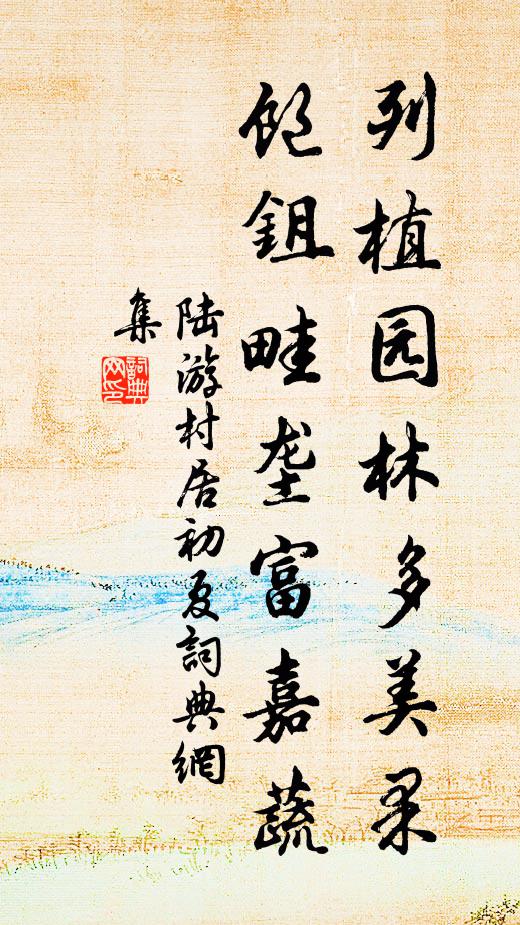 列植园林多美果
饱鉏畦垄富嘉蔬
陆游村居初夏詞典網
集
詞典網印